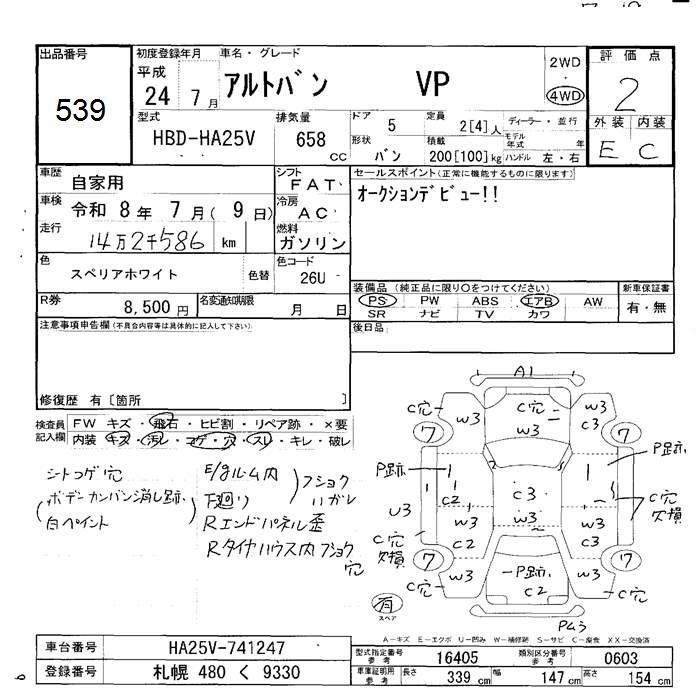 出品番号 初度登録年月 車名・グレード 評価点
539
平成 24 7月 アルトバン VP 2WD ・ 4WD 2
型式 排気量 ドア 5 定員 2[4]人 ディーラー・並行 外装 内装
HBD-HA25V 658 cc 形状 バン 積載 200[100]kg モデル年式 年 ハンドル 左・右 E C
車歴 自家用 シフト FAT セールスポイント(正常に機能するものに限ります)
車検 令和 8年 7月( 9日) 冷房 AC オークションデビュー!!
走行 14万2千586 km 燃料 ガソリン
色 スペリアホワイト 色替 色コード 26U
装備品(純正品に限り○をつけてください) 新車保証書
PS PW ABS エアB AW 有・無
SR ナビ TV カワ
R券 8,500円 名変通知期限 月 日
注意事項申告欄(不具合内容等は具体的に記入して下さい) 後日品
修復歴 有[箇所 ]
検査員記入欄 FW キズ・飛石・ヒビ割・リペア跡・×要
内装 キズ・汚レ・コゲ・穴・スレ・キレ・破レ
シトコゲ穴
(ボデーカンバン消し跡
白ペイント)
E/gルーム内
下廻り
)フショクハガレ
Rエンドパネル歪
Rタイヤハウス内フショク穴
A1
C穴 W3 C穴 W3 W3 C3
7 7
P跡 P跡
C2 C3
U3 W3 W3 W3 C穴欠損
C穴欠損 C2 C3
7 7
W3 P跡 W3
C穴 C2 C穴
有
スペア
Pムラ
A-キズ E-エクボ U-凹み W-補修跡 S-サビ C-腐食 XX-交換済
車台番号 HA25V-741247 型式指定番号 参考 16405 類別区分番号 参考 0603
登録番号 札幌 480 く 9330 車庫証明用 参考 長さ 339 cm 幅 147 cm 高さ 154 cm